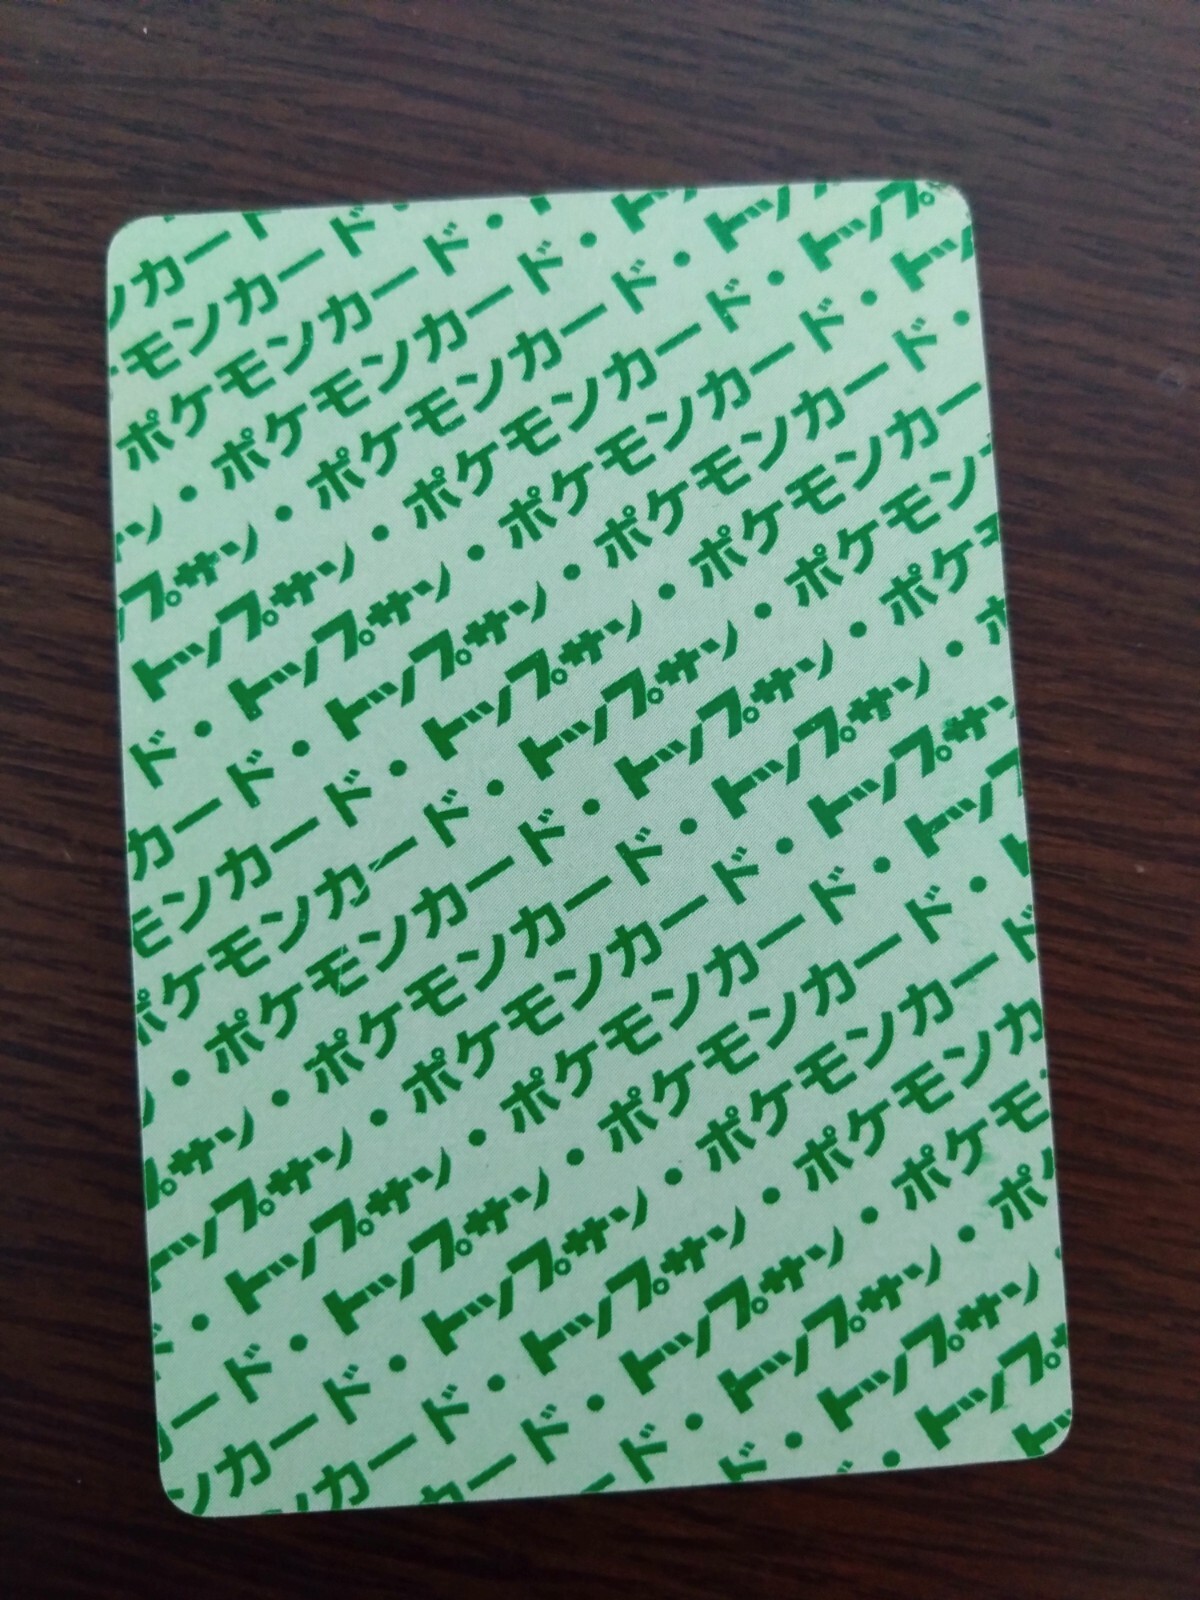 ンカード
モンカード・
ポケモンカード・
ン・ポケモンカード・トッ
プサン・ポケモンカード・トッ
トップサン・ポケモンカード・トップ
ド・トップサン・ポケモンカード・トッ
カード・トップサン・ポケモンカード・
モンカード・トップサン・ポケモンカー
ポケモンカード・トップサン・ポケモン
・ポケモンカード・トップサン・ポケモ
プサン・ポケモンカード・トップサン・ポ
トップサン・ポケモンカード・トップサン
・トップサン・ポケモンカード・トップ
ード・トップサン・ポケモンカード・ト
ンカード・トップサン・ポケモンカード
カード・トップサン・ポケモンカ
ード・トップサン・ポケモ
ード・トップサン・ポ
ド・トップサン
・トップ
ト